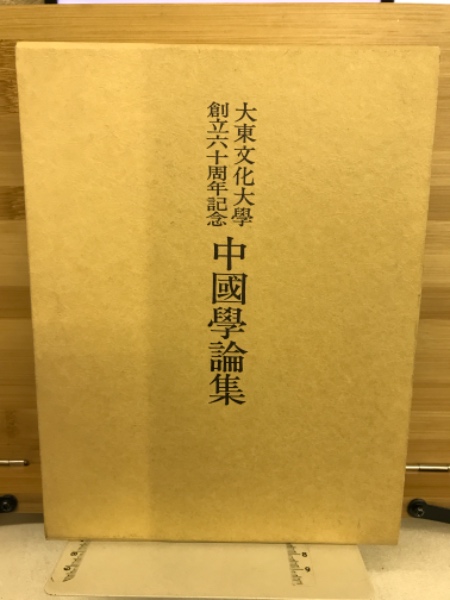 大東文化大學
創立六十周年記念
中國學論集